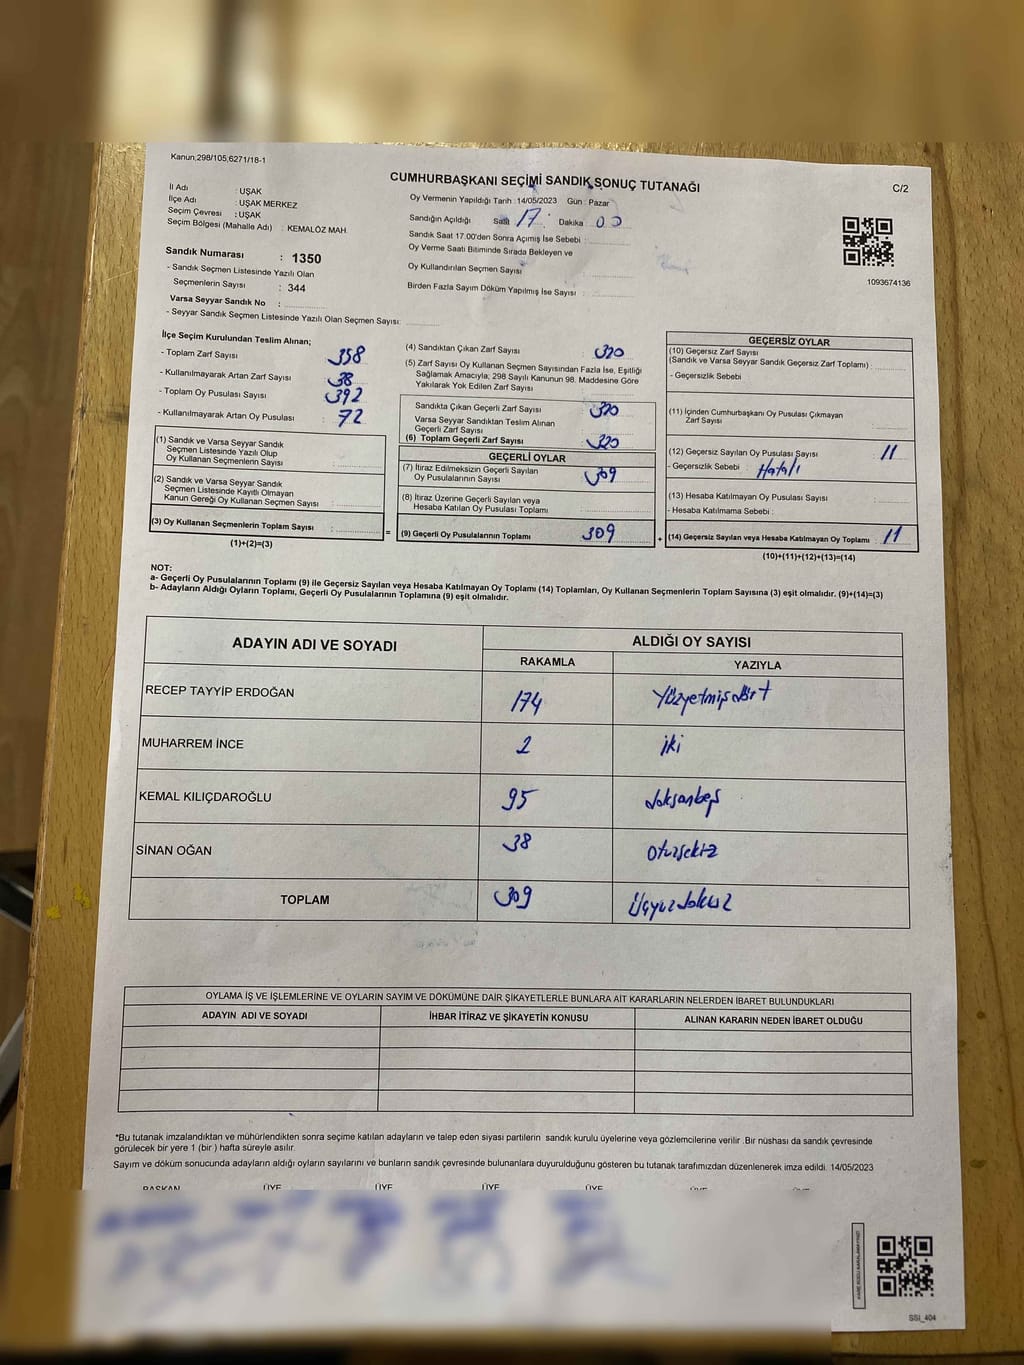 Kanun,298/105,6271/18-1
CUMHURBAŞKANI SEÇİMİ SANDIK SONUÇ TUTANAĞI
C/2
İl Adı : UŞAK
İlçe Adı : UŞAK MERKEZ
Seçim Çevresi : UŞAK
Seçim Bölgesi (Mahalle Adı) : KEMALÖZ MAH.
Oy Vermenin Yapıldığı Tarih :14/05/2023 Gün : Pazar
Sandığın Açıldığı Saat 17 : Dakika 00
Sandık Saat 17.00'den Sonra Açımış İse Sebebi :
Oy Verme Saati Bitiminde Sırada Bekleyen ve
Oy Kullandırılan Seçmen Sayısı :
Birden Fazla Sayım Döküm Yapılmış İse Sayısı :
1093674136
Sandık Numarası : 1350
- Sandık Seçmen Listesinde Yazılı Olan
Seçmenlerin Sayısı : 344
Varsa Seyyar Sandık No :
- Seyyar Sandık Seçmen Listesinde Yazılı Olan Seçmen Sayısı:
İlçe Seçim Kurulundan Teslim Alınan;
- Toplam Zarf Sayısı : 358
- Kullanılmayarak Artan Zarf Sayısı : 38
- Toplam Oy Pusulası Sayısı : 392
- Kullanılmayarak Artan Oy Pusulası : 72
(1) Sandık ve Varsa Seyyar Sandık
Seçmen Listesinde Yazılı Olup
Oy Kullanan Seçmenlerin Sayısı :
(2) Sandık ve Varsa Seyyar Sandık
Seçmen Listesinde Kayıtlı Olmayan
Kanun Gereği Oy Kullanan Seçmen Sayısı :
(3) Oy Kullanan Seçmenlerin Toplam Sayısı :
(1)+(2)=(3)
=
(4) Sandıktan Çıkan Zarf Sayısı : 320
(5) Zarf Sayısı Oy Kullanan Seçmen Sayısından Fazla İse, Eşitliği
Sağlamak Amacıyla; 298 Sayılı Kanunun 98. Maddesine Göre
Yakılarak Yok Edilen Zarf Sayısı :
Sandıkta Çıkan Geçerli Zarf Sayısı : 320
Varsa Seyyar Sandıktan Teslim Alınan
Geçerli Zarf Sayısı :
(6) Toplam Geçerli Zarf Sayısı : 320
GEÇERLİ OYLAR
(7) İtiraz Edilmeksizin Geçerli Sayılan
Oy Pusulalarının Sayısı : 309
(8) İtiraz Üzerine Geçerli Sayılan veya
Hesaba Katılan Oy Pusulası Toplamı :
(9) Geçerli Oy Pusulalarının Toplamı : 309
+
GEÇERSİZ OYLAR
(10) Geçersiz Zarf Sayısı
(Sandık ve Varsa Seyyar Sandık Geçersiz Zarf Toplamı) :
- Geçersizlik Sebebi :
(11) İçinden Cumhurbaşkanı Oy Pusulası Çıkmayan
Zarf Sayısı :
(12) Geçersiz Sayılan Oy Pusulası Sayısı : 11
- Geçersizlik Sebebi : Hatalı
(13) Hesaba Katılmayan Oy Pusulası Sayısı :
- Hesaba Katılmama Sebebi :
(14) Geçersiz Sayılan veya Hesaba Katılmayan Oy Toplamı : 11
(10)+(11)+(12)+(13)=(14)
NOT:
a- Geçerli Oy Pusulalarının Toplamı (9) ile Geçersiz Sayılan veya Hesaba Katılmayan Oy Toplamı (14) Toplamları, Oy Kullanan Seçmenlerin Toplam Sayısına (3) eşit olmalıdır. (9)+(14)=(3)
b- Adayların Aldığı Oyların Toplamı, Geçerli Oy Pusulalarının Toplamına (9) eşit olmalıdır.
ADAYIN ADI VE SOYADI
ALDIĞI OY SAYISI
RAKAMLA YAZIYLA
RECEP TAYYİP ERDOĞAN 174 Yüzyetmişdört
MUHARREM İNCE 2 iki
KEMAL KILIÇDAROĞLU 95 doksanbeş
SİNAN OĞAN 38 otuzsekiz
TOPLAM 309 Üçyüzdokuz
OYLAMA İŞ VE İŞLEMLERİNE VE OYLARIN SAYIM VE DÖKÜMÜNE DAİR ŞİKAYETLERLE BUNLARA AİT KARARLARIN NELERDEN İBARET BULUNDUKLARI
ADAYIN ADI VE SOYADI İHBAR İTİRAZ VE ŞİKAYETİN KONUSU ALINAN KARARIN NEDEN İBARET OLDUĞU
*Bu tutanak imzalandıktan ve mühürlendikten sonra seçime katılan adayların ve talep eden siyasi partilerin sandık kurulu üyelerine veya gözlemcilerine verilir .Bir nüshası da sandık çevresinde
görülecek bir yere 1 (bir ) hafta süreyle asılır.
Sayım ve döküm sonucunda adayların aldığı oyların sayılarını ve bunların sandık çevresinde bulunanlara duyurulduğunu gösteren bu tutanak tarafımızdan düzenlenerek imza edildi. 14/05/2023
BAŞKAN ÜYE ÜYE ÜYE ÜYE
SSİ_404